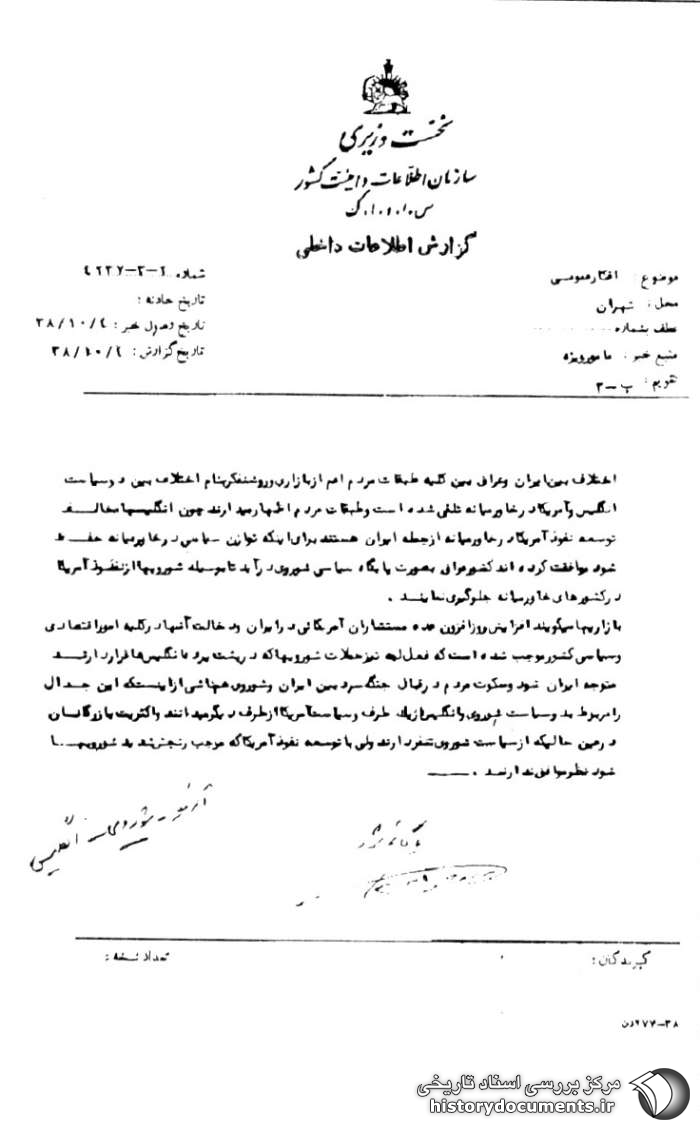 نخست وزیری
سازمان اطلاعات و امنیت کشور
س.ا.و.ا.ک
گزارش اطلاعات داخلی
موضوع: افکار عمومی
محل: تهران
عطف بشماره
منبع خبر: مامور ویژه
تقویم: ب-۳
شماره
تاریخ حادثه:
تاریخ وصول خبر: ۳۸/۱۰/۶
تاریخ گزارش: ۳۸/۱۰/۶
اختلاف بین ایران و عراق بین کلیه طبقات مردم اعم از بازاری و روشنفکر بنام اختلاف بین دو سیاست
انگلیس و آمریکا در خاورمیانه تلقی شده است و طبقات مردم اظهار میدارند چون انگلیسها مخالف
توسعه نفوذ آمریکا در خاورمیانه از جمله ایران هستند برای اینکه توازن سیاسی در خاورمیانه حفظ
شود موافقت کرده اند کشور عراق بصورت پایگاه سیاسی شوروی درآید تا بوسیله شورویها از نفوذ آمریکا
در کشورهای خاورمیانه جلوگیری نمایند .
بازاریها میگویند افزایش روزافزون عده مستشاران آمریکائی در ایران و دخالت آنها در کلیه امور اقتصادی
و سیاسی کشور موجب شده است که لبه تیز حملات شورویها که در پشت پرده با انگلیس ها قرار دارند
متوجه ایران شود و سکوت مردم در قبال جنگ سرد بین ایران و شوروی هم ناشی از اینستکه این جدال
را مربوط به دو سیاست شوروی و انگلیس از یک طرف و سیاست آمریکا از طرف دیگر میدانند و اکثریت بازرگانان
در عین حالیکه از سیاست شوروی تنفر دارند ولی با توسعه نفوذ آمریکا که موجب رنجش شدید شورویها
شود نظر موافق ندارند .
شوروی - انگلیس
بایگانی شود
گیرندگان:
تعداد نسخه:
مرکز بررسی اسناد تاریخی
historydocuments.ir